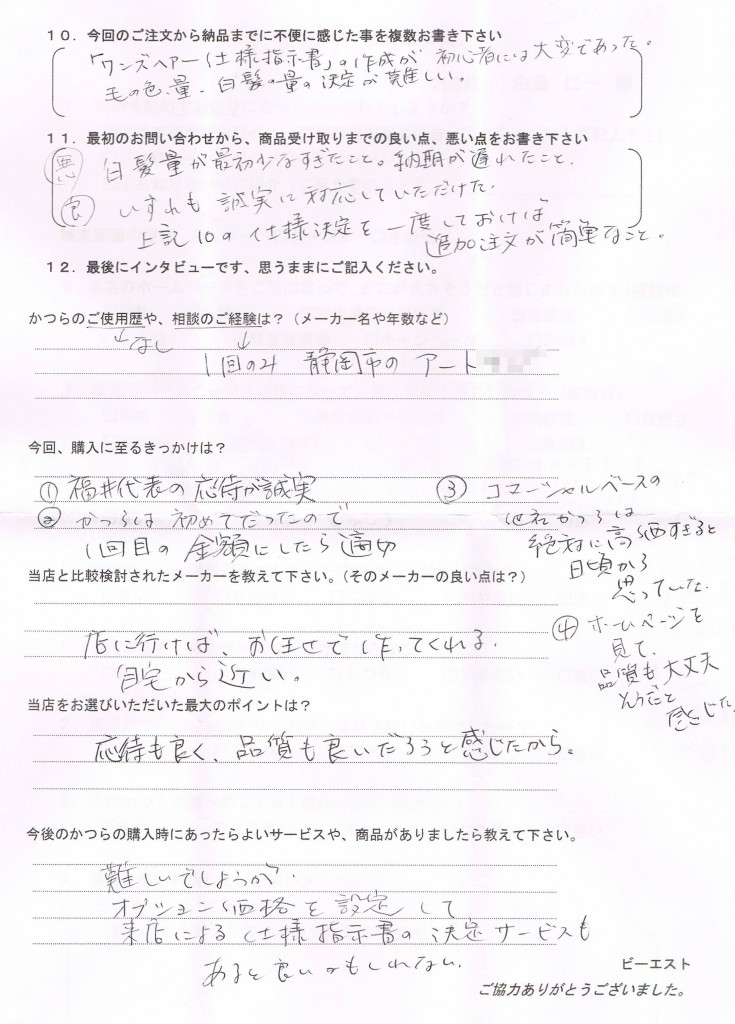 10．今回のご注文から納品までに不便に感じた事を複数お書き下さい
「ワンズヘアー仕様指示書」の作成が初心者には大変であった。
毛の色、量、白髪の量の決定が難しい。
11．最初のお問い合わせから、商品受け取りまでの良い点、悪い点をお書き下さい
悪 白髪量が最初少なすぎたこと。納期が遅れたこと。
いずれも誠実に対応していただけた。
良 上記10の仕様決定を一度しておけば
追加注文が簡単なこと。
12．最後にインタビューです、思うままにご記入ください。
かつらのご使用歴や、相談のご経験は？（メーカー名や年数など）
なし
1回のみ 静岡市の アート
今回、購入に至るきっかけは？
① 福井代表の応待が誠実
② かつらは初めてだったので
1回目の金額にしたら適切
③ コマーシャルベースの
他社かつらは
絶対に高価すぎると
日頃から
思っていた
④ ホームページを
見て、
品質も大丈夫
そうだと
感じた
当店と比較検討されたメーカーを教えて下さい。（そのメーカーの良い点は？）
店に行けば、お任せで作ってくれる。
自宅から近い。
当店をお選びいただいた最大のポイントは？
応待も良く、品質も良いだろうと感じたから。
今後のかつらの購入時にあったらよいサービスや、商品がありましたら教えて下さい。
難しいでしょうが、
オプション価格を設定して
来店による仕様指示書の決定サービスも
あると良いかもしれない。
ビーエスト
ご協力ありがとうございました。